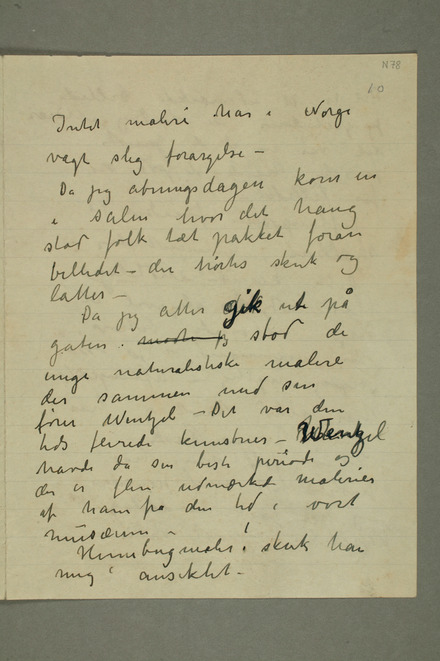 N78
10
Intet maleri har i Norge
vagt slig forargelse –
Da jeg åbningsdagen kom ind
i salen hvor det hang
stod folk tæt pakket foran
billedet – der hørtes skrik og
latter –
Da jeg atter gik ut på
gaten stod de
unge naturalistiske malere
der sammen med sin
fører Wentzel – Det var den
tids feirede kunstner – Wentzel
havde da sin beste periode og
der er flere udmærkede malerier
af ham fra den tid i vort
musæum –
Humbugmaler! skrek han
mig i ansiktet –